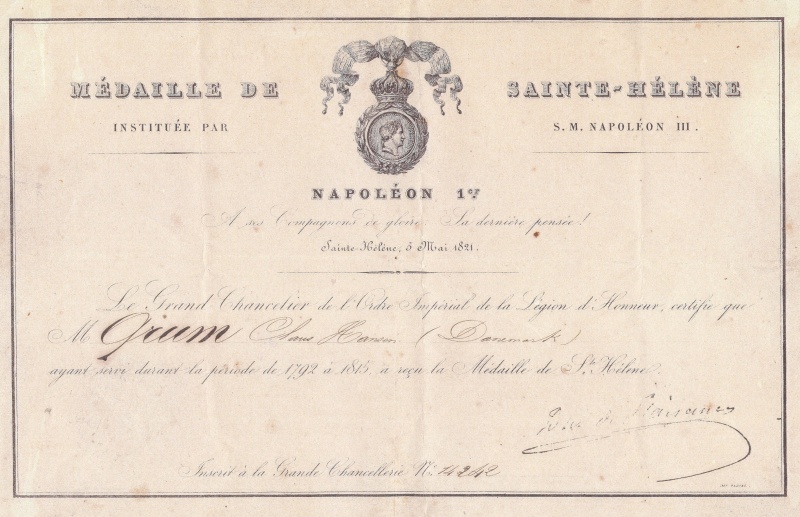 MÉDAILLE DE SAINTE-HÉLÈNE
INSTITUÉE PAR S. M. NAPOLÉON III.
NAPOLÉON 1er
A ses Compagnons de gloire. Sa dernière pensée!
Sainte-Hélène, 5 Mai 1821.
Le Grand Chancelier de l'Ordre Impérial de la Légion d'Honneur, certifie que
M Grum Claus Hansen (Danemark)
ayant servi durant la période de 1792 à 1815, a reçu la Médaille de Ste Hélène.
Inscrit à la Grande Chancellerie No. 4242